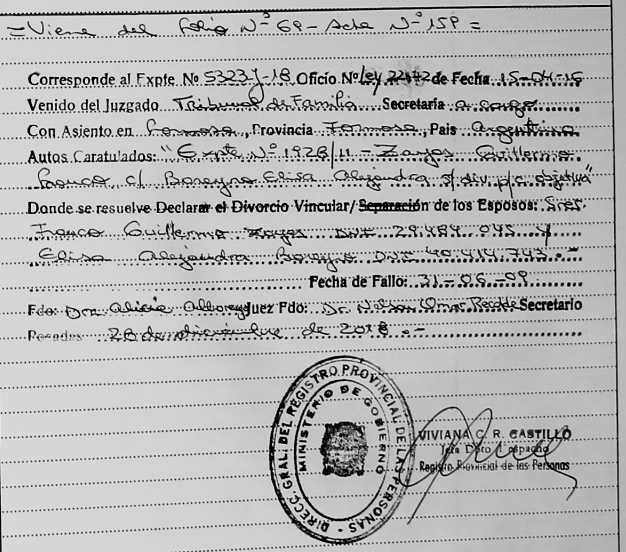 = Viene del folio Nº 69 - Acta Nº 159 =
Corresponde al Expte No 5323-J-18 Oficio Nº Ley 22172 de Fecha 15-04-16
Venido del Juzgado Tribunal de Familia Secretaría a cargo
Con Asiento en Formosa, Provincia Formosa, Pais Argentina
Autos Caratulados: "Expte Nº 1928/11 - Zayas Guillermo
Franco c/ Boreyro Elisa Alejandra s/ div. p/c objetiva"
Donde se resuelve Declarar el Divorcio Vincular/ Separación de los Esposos: Sres
Franco Guillermo Zayas DNI 29.484.045 y
Elisa Alejandra DNI 40.414.743.-
Fecha de Fallo: 31-06-09
Fdo: Dra Alicia Juez Fdo: Dr. Nelson Omar Secretario
Posadas 28 de diciembre de 2018.-
DIRECC. GRAL. DEL REGISTRO PROVINCIAL DE LAS PERSONAS -
MINISTERIO DE GOBIERNO
VIVIANA C. R. CASTILLO
Jefa Dpto Despacho
Registro Provincial de las Personas